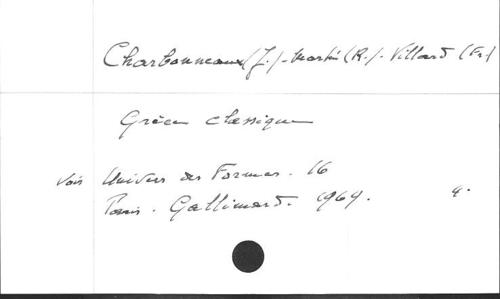 Charbonneaux (J.) - Martin (R.) - Villard (Fr.)
Grèce classique
Voir Univers des Formes. 16
Paris. Gallimard. 1969. 4.